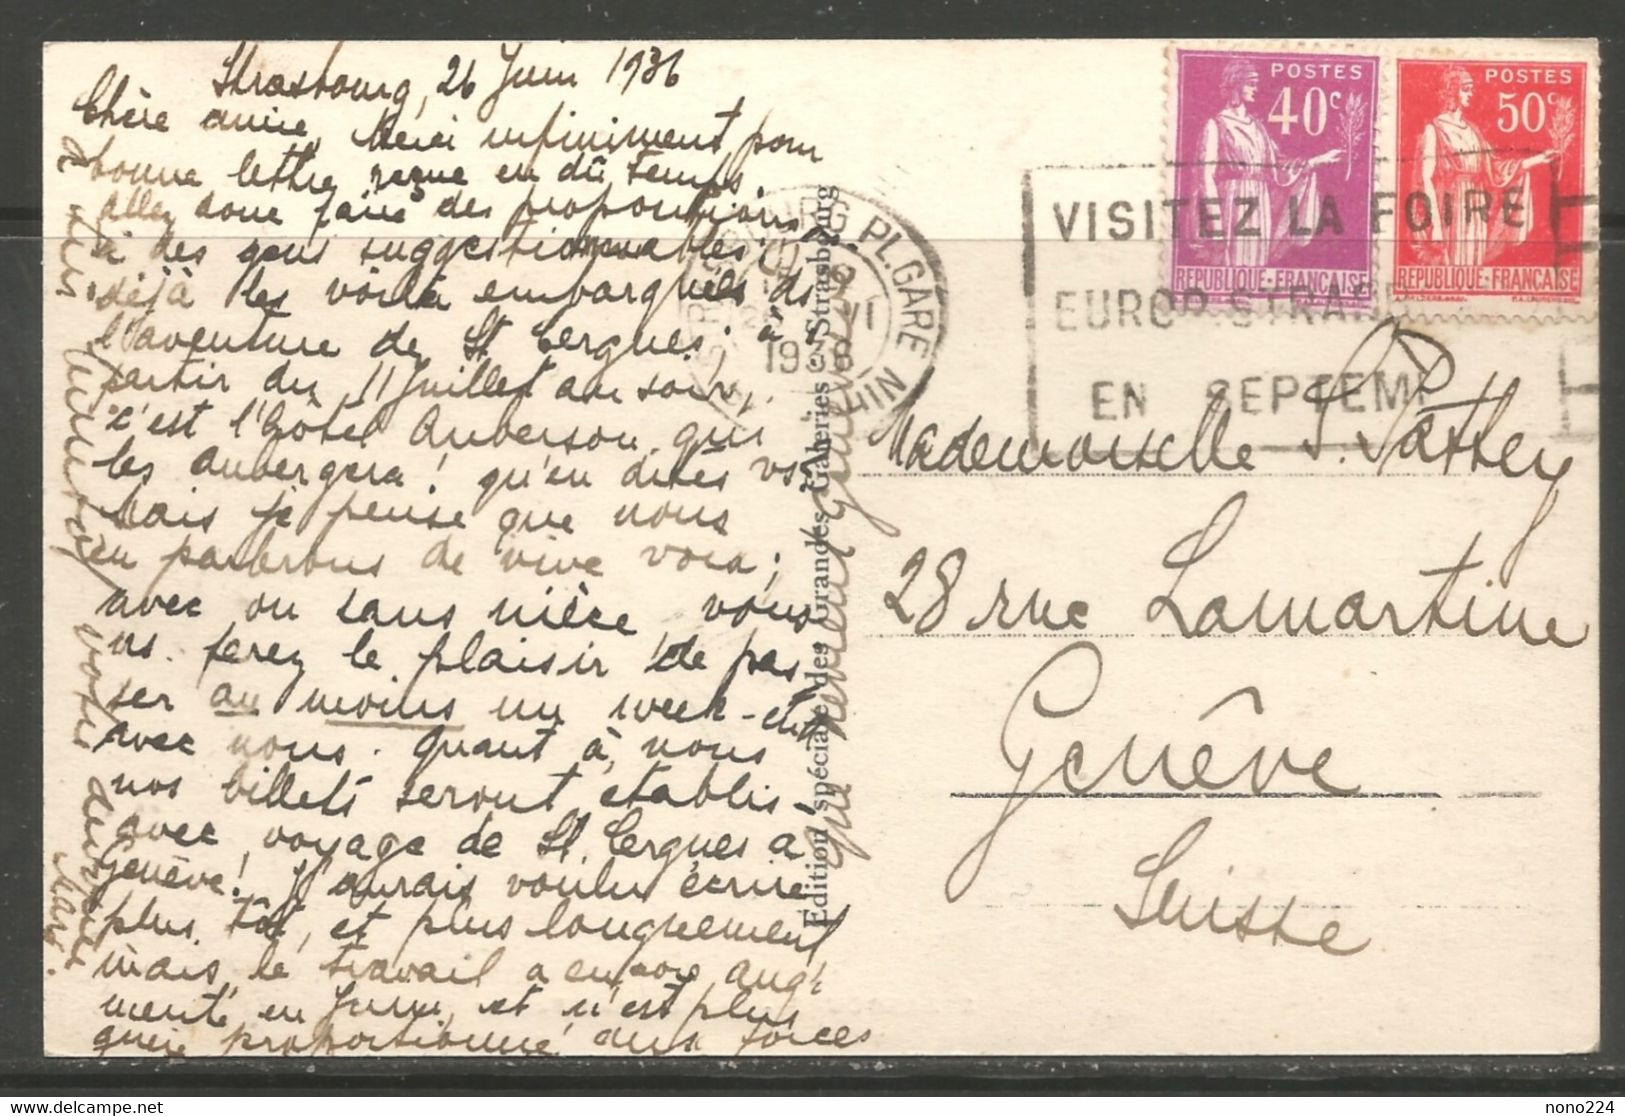 Strasbourg, 26 Juin 1936
Chère amie, Merci infiniment pour
bonne lettre reçue en dû temps.
Allez donc faire des propositions
à des gens suggestionnables;
déjà les voilà embarqués ds
l'aventure de St Cergues; à
partir du 11 Juillet au soir,
c'est l'hôtel Auberson qui
les aubergera! qu'en dites vs?
Mais je pense que nous
en parlerons de vive voix;
avec ou sans nièce vous
ns. ferez le plaisir de pas-
ser au moins un week-end
avec nous. Quant à nous
nos billets seront établis
avec voyage de St. Cergues a
Genève! J'aurais voulu écrire
plus tôt, et plus longuement
mais le travail a encore aug-
menté en Juin, et n'est plus
guère proportionné aux forces
votre
Mademoiselle P. Patthey
28 rue Lamartine
Genève
Suisse
POSTES
40c
REPUBLIQUE-FRANÇAISE
POSTES
50c
REPUBLIQUE-FRANÇAISE
VISITEZ LA FOIRE
EUROP. STRAS
EN SEPTEMB
RG PL. GARE
VI
1936
RHIN
Edition spéciale des Grandes Galeries - Strasbourg
nono224